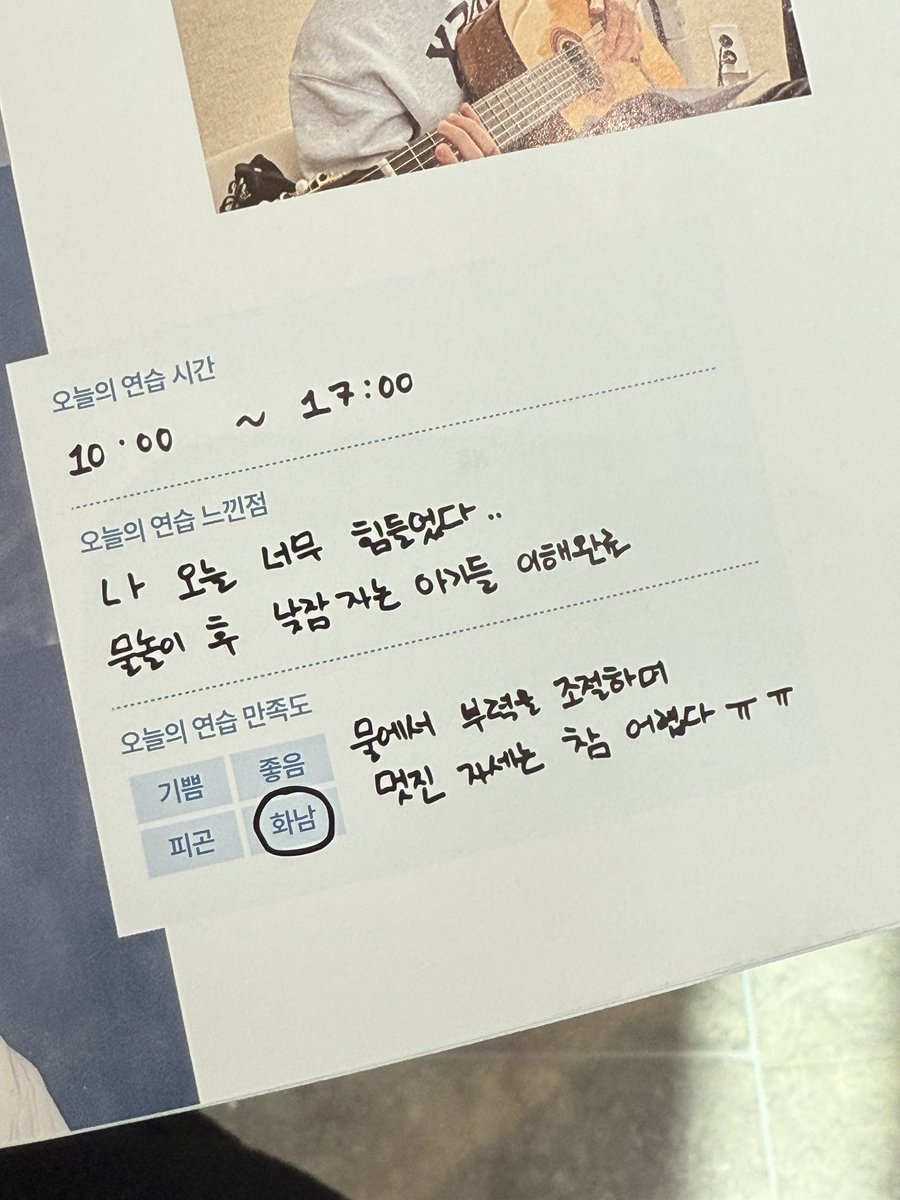 오늘의 연습 시간
10:00 ~ 17:00
오늘의 연습 느낀점
나 오늘 너무 힘들었다..
물놀이 후 낮잠자는 아기들 이해완료
오늘의 연습 만족도
기쁨 좋음
피곤 화남
물에서 부력을 조절하며
멋진 자세는 참 어렵다 ㅠㅠ